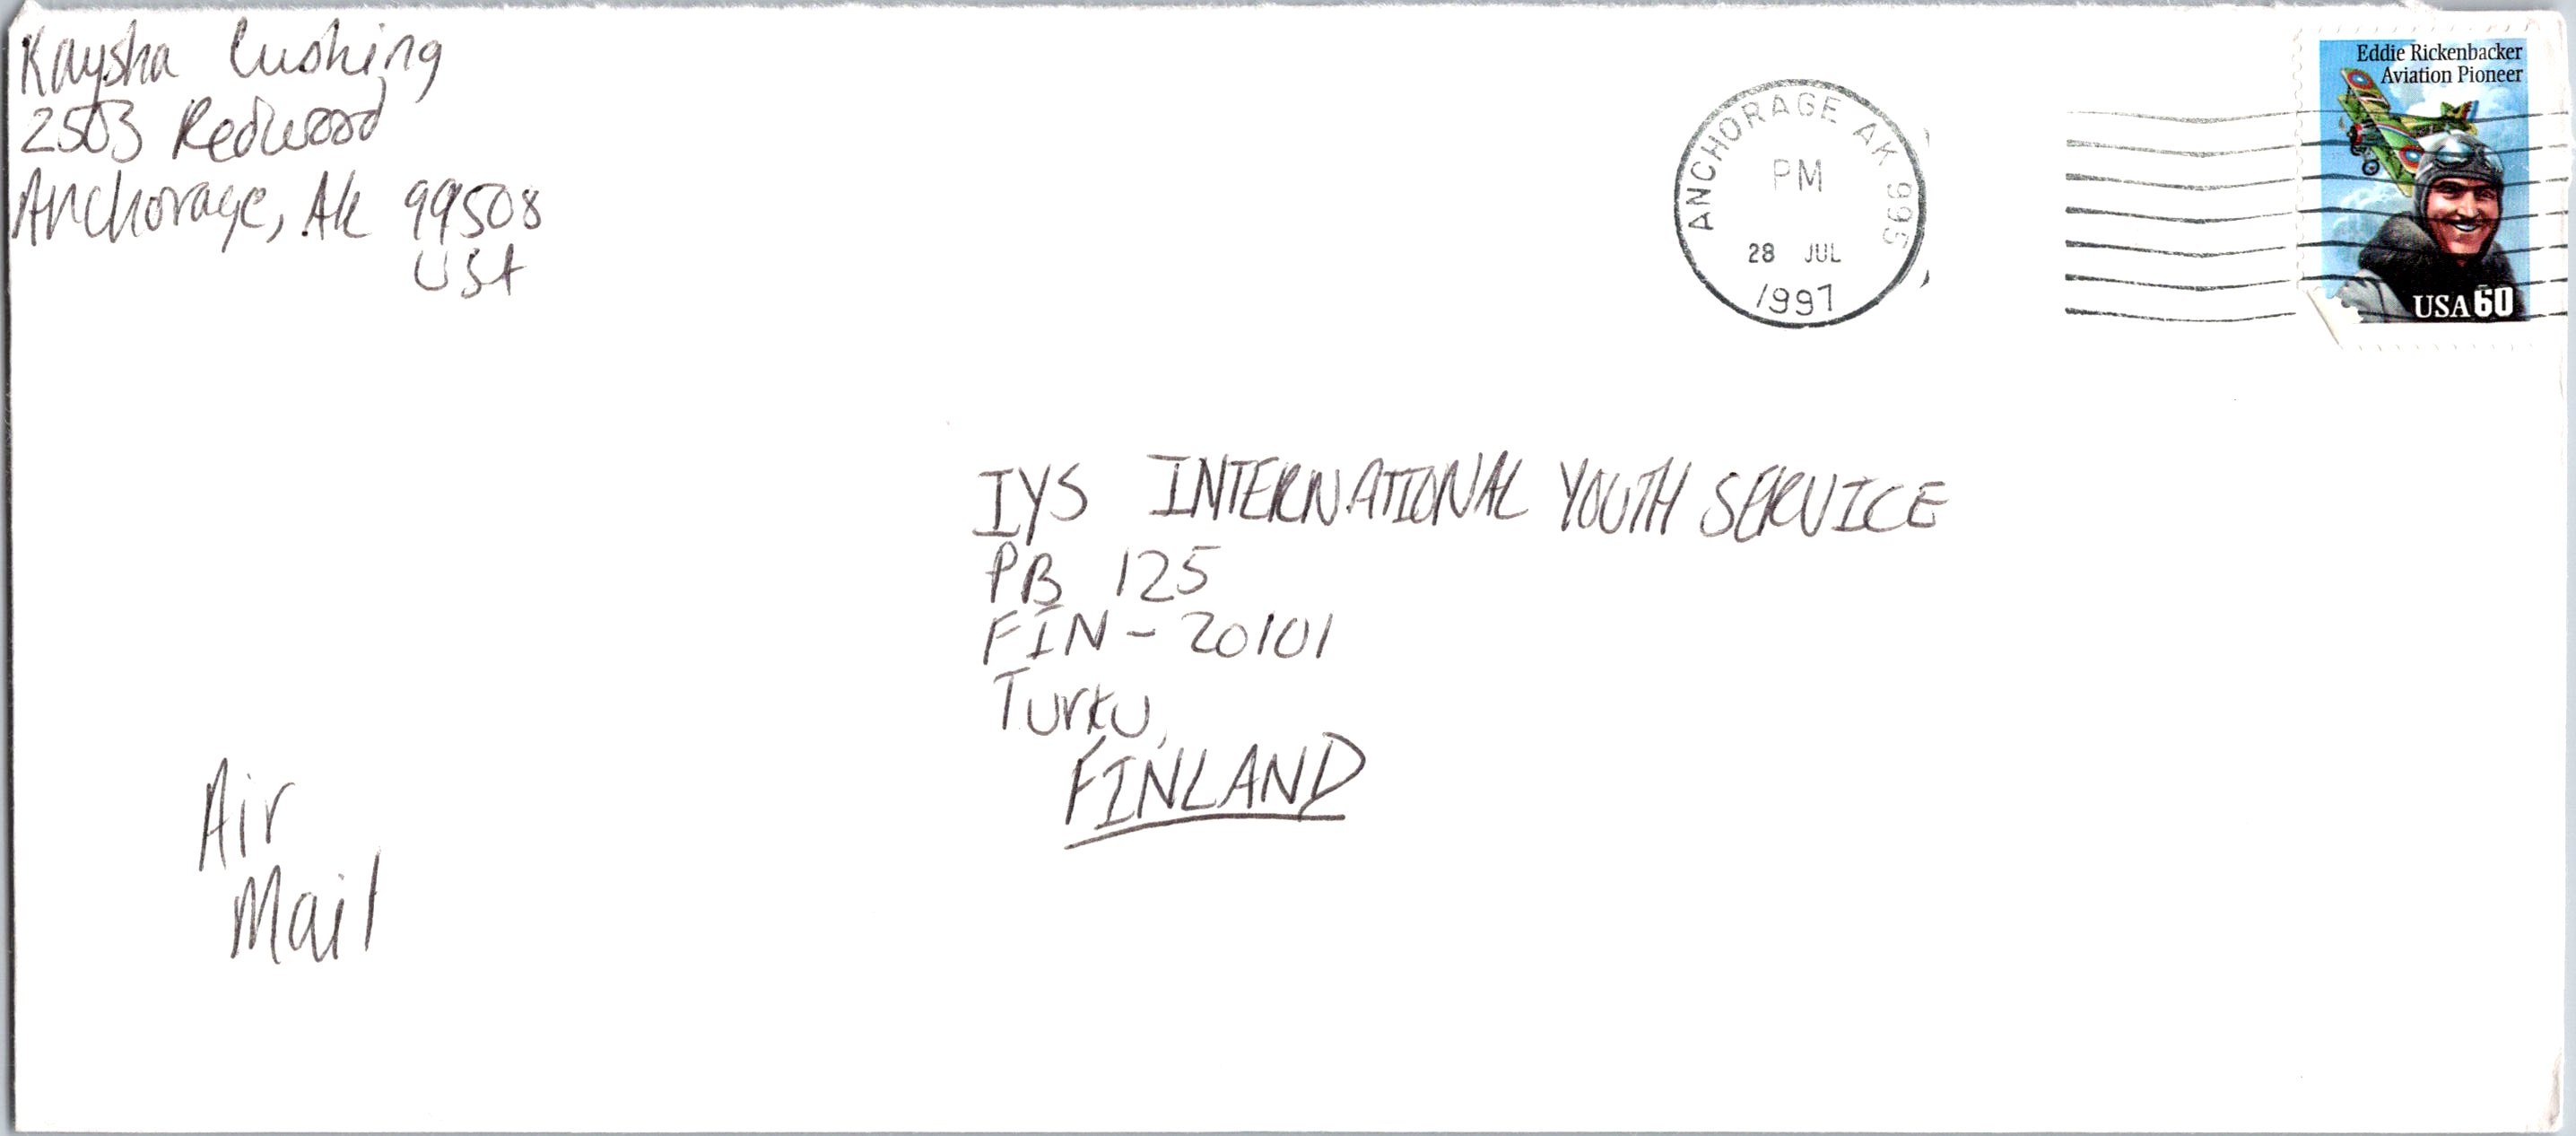 Kaysha Cushing
2503 Redwood
Anchorage, Ak 99508
USA
ANCHORAGE AK 995
PM
28 JUL
1997
Eddie Rickenbacker
Aviation Pioneer
USA 60
IYS INTERNATIONAL YOUTH SERVICE
PB 125
FIN - 20101
Turku,
FINLAND
Air
Mail